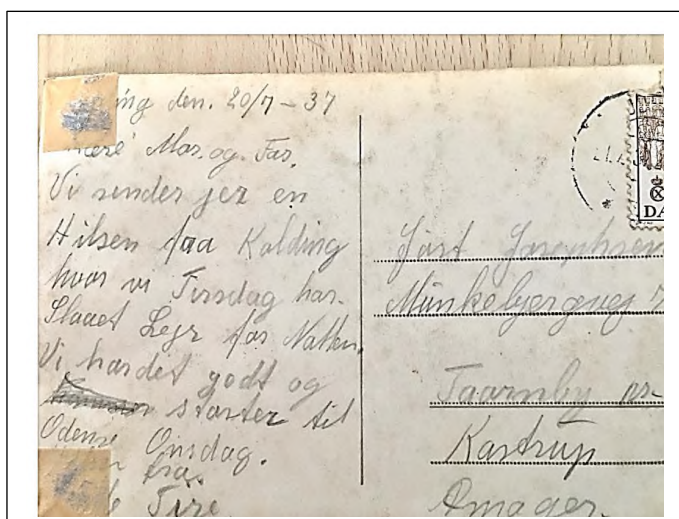 den. 20/7 - 37
Mor. og. Far.
Vi sender jer en
Hilsen fra Kolding
hvor vi Tirsdag har
Slaaet Lejr for Natten.
Vi har det godt og
starter til
Odense Onsdag.
fra.
Josephsen
Munkebjergvej
Taarnby pr.
Kastrup
Amager.
DA